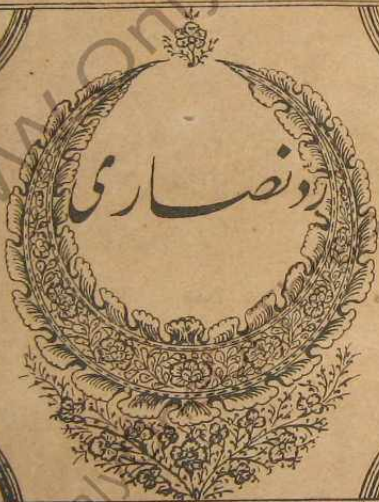 رد نصاری